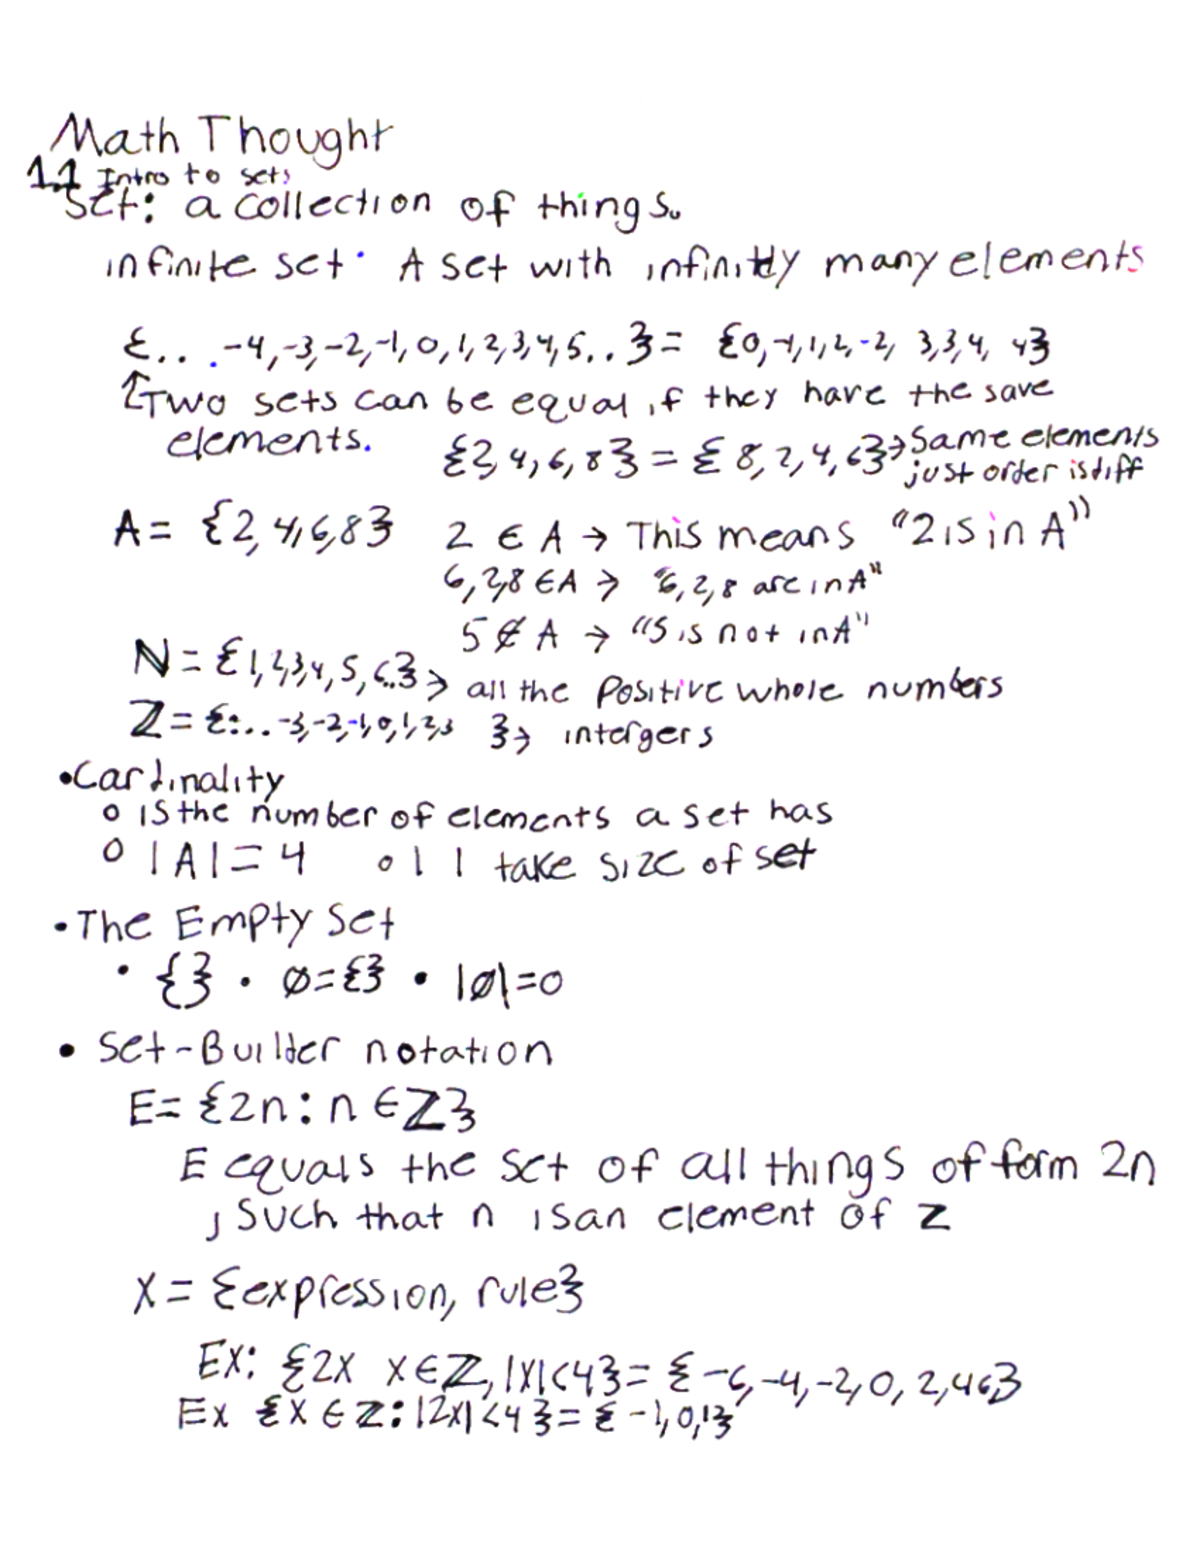 Math Thought
1.1 Intro to sets
Set: a collection of things.
infinite set: A set with infinitly many elements
{. . . -4,-3,-2,-1,0,1,2,3,4,5. . } = {0,-1,1,2,-2, 3,3,4, 43
↑Two sets can be equal if they have the save
elements.
{2,4,6,8} = {8,2,4,6}→Same elements
just order is diff
A = {2,4,6,8} 2 ∈ A → This means "2 is in A"
6,2,8 ∈ A → "6,2,8 are in A"
5 ∉ A → "5 is not in A"
ℕ = {1,2,3,4,5,6..} → all the Positive whole numbers
ℤ = {:..-3,-2,-1,0,1,2,3 } → intergers
•Cardinality
o is the number of elements a set has
o |A| = 4 o | | take size of set
•The Empty Set
• {} • ∅={} • |∅|=0
• Set-Builder notation
E= {2n:n ∈ℤ}
E equals the set of all things of form 2n
, Such that n is an element of Z
X = {expression, rule}
Ex: {2x x∈ℤ, |x|<4} = {-6,-4,-2,0,2,4 6}
Ex {x ∈ Z: |2x|<4} = {-1,0,1}